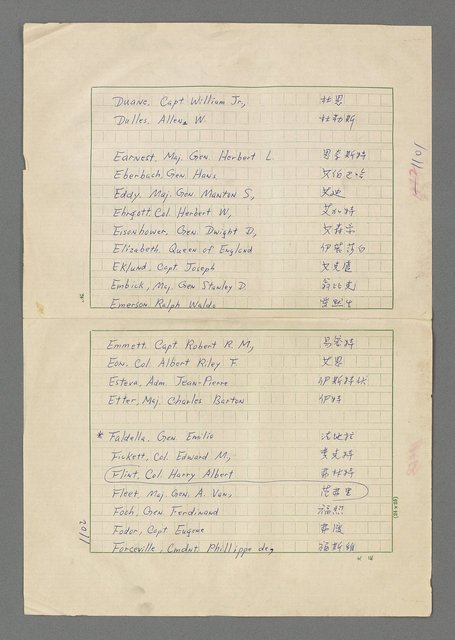 Duane, Capt William Jr, 杜恩
Dulles, Allen W. 杜勒斯
Earnest, Maj. Gen. Herbert L. 恩奈斯特
Eberbach, Gen. Hans
Eddy, Maj. Gen. Manton S, 艾迪
Ehrgott, Col. Herbert W,
Eisenhower, Gen. Dwight D,
Elizabeth, Queen of England 伊莉莎白
Eklund, Capt Joseph 艾克隆
Embick, Maj. Gen Stanley D 翁比克
Emerson, Ralph Waldo
Emmett, Capt Robert R. M,
Eon, Col. Albert Riley F. 艾恩
Esteva, Adm. Jean-Pierre 伊斯特伐
Etter, Maj. Charles Barton 伊特
* Faldella, Gen. Emilio 法地拉
Fickett, Col. Edward M, 費克特
Flint, Col. Harry Albert 弗林特
Fleet, Maj. Gen. A. Van, 范弗里
Foch, Gen Ferdinand 福煦
Fodor, Capt Eugene
Forceville, Cmdnt Phillippe de, 福斯維